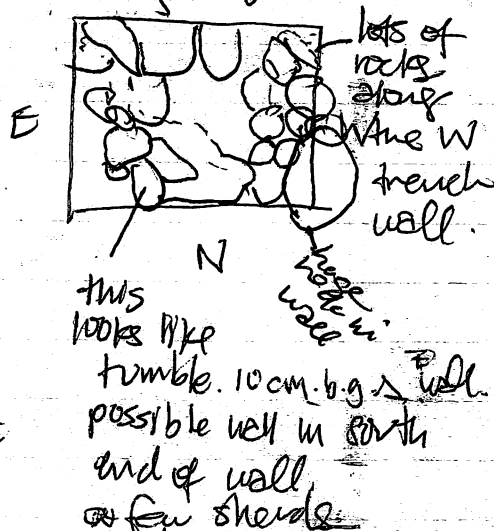 lots of
rocks
along
the W
trench
wall.
E
W
N
huge
rock in
wall
this
looks like
tumble. 10 cm. b.g.s
possible wall in south
end of wall
few sherds